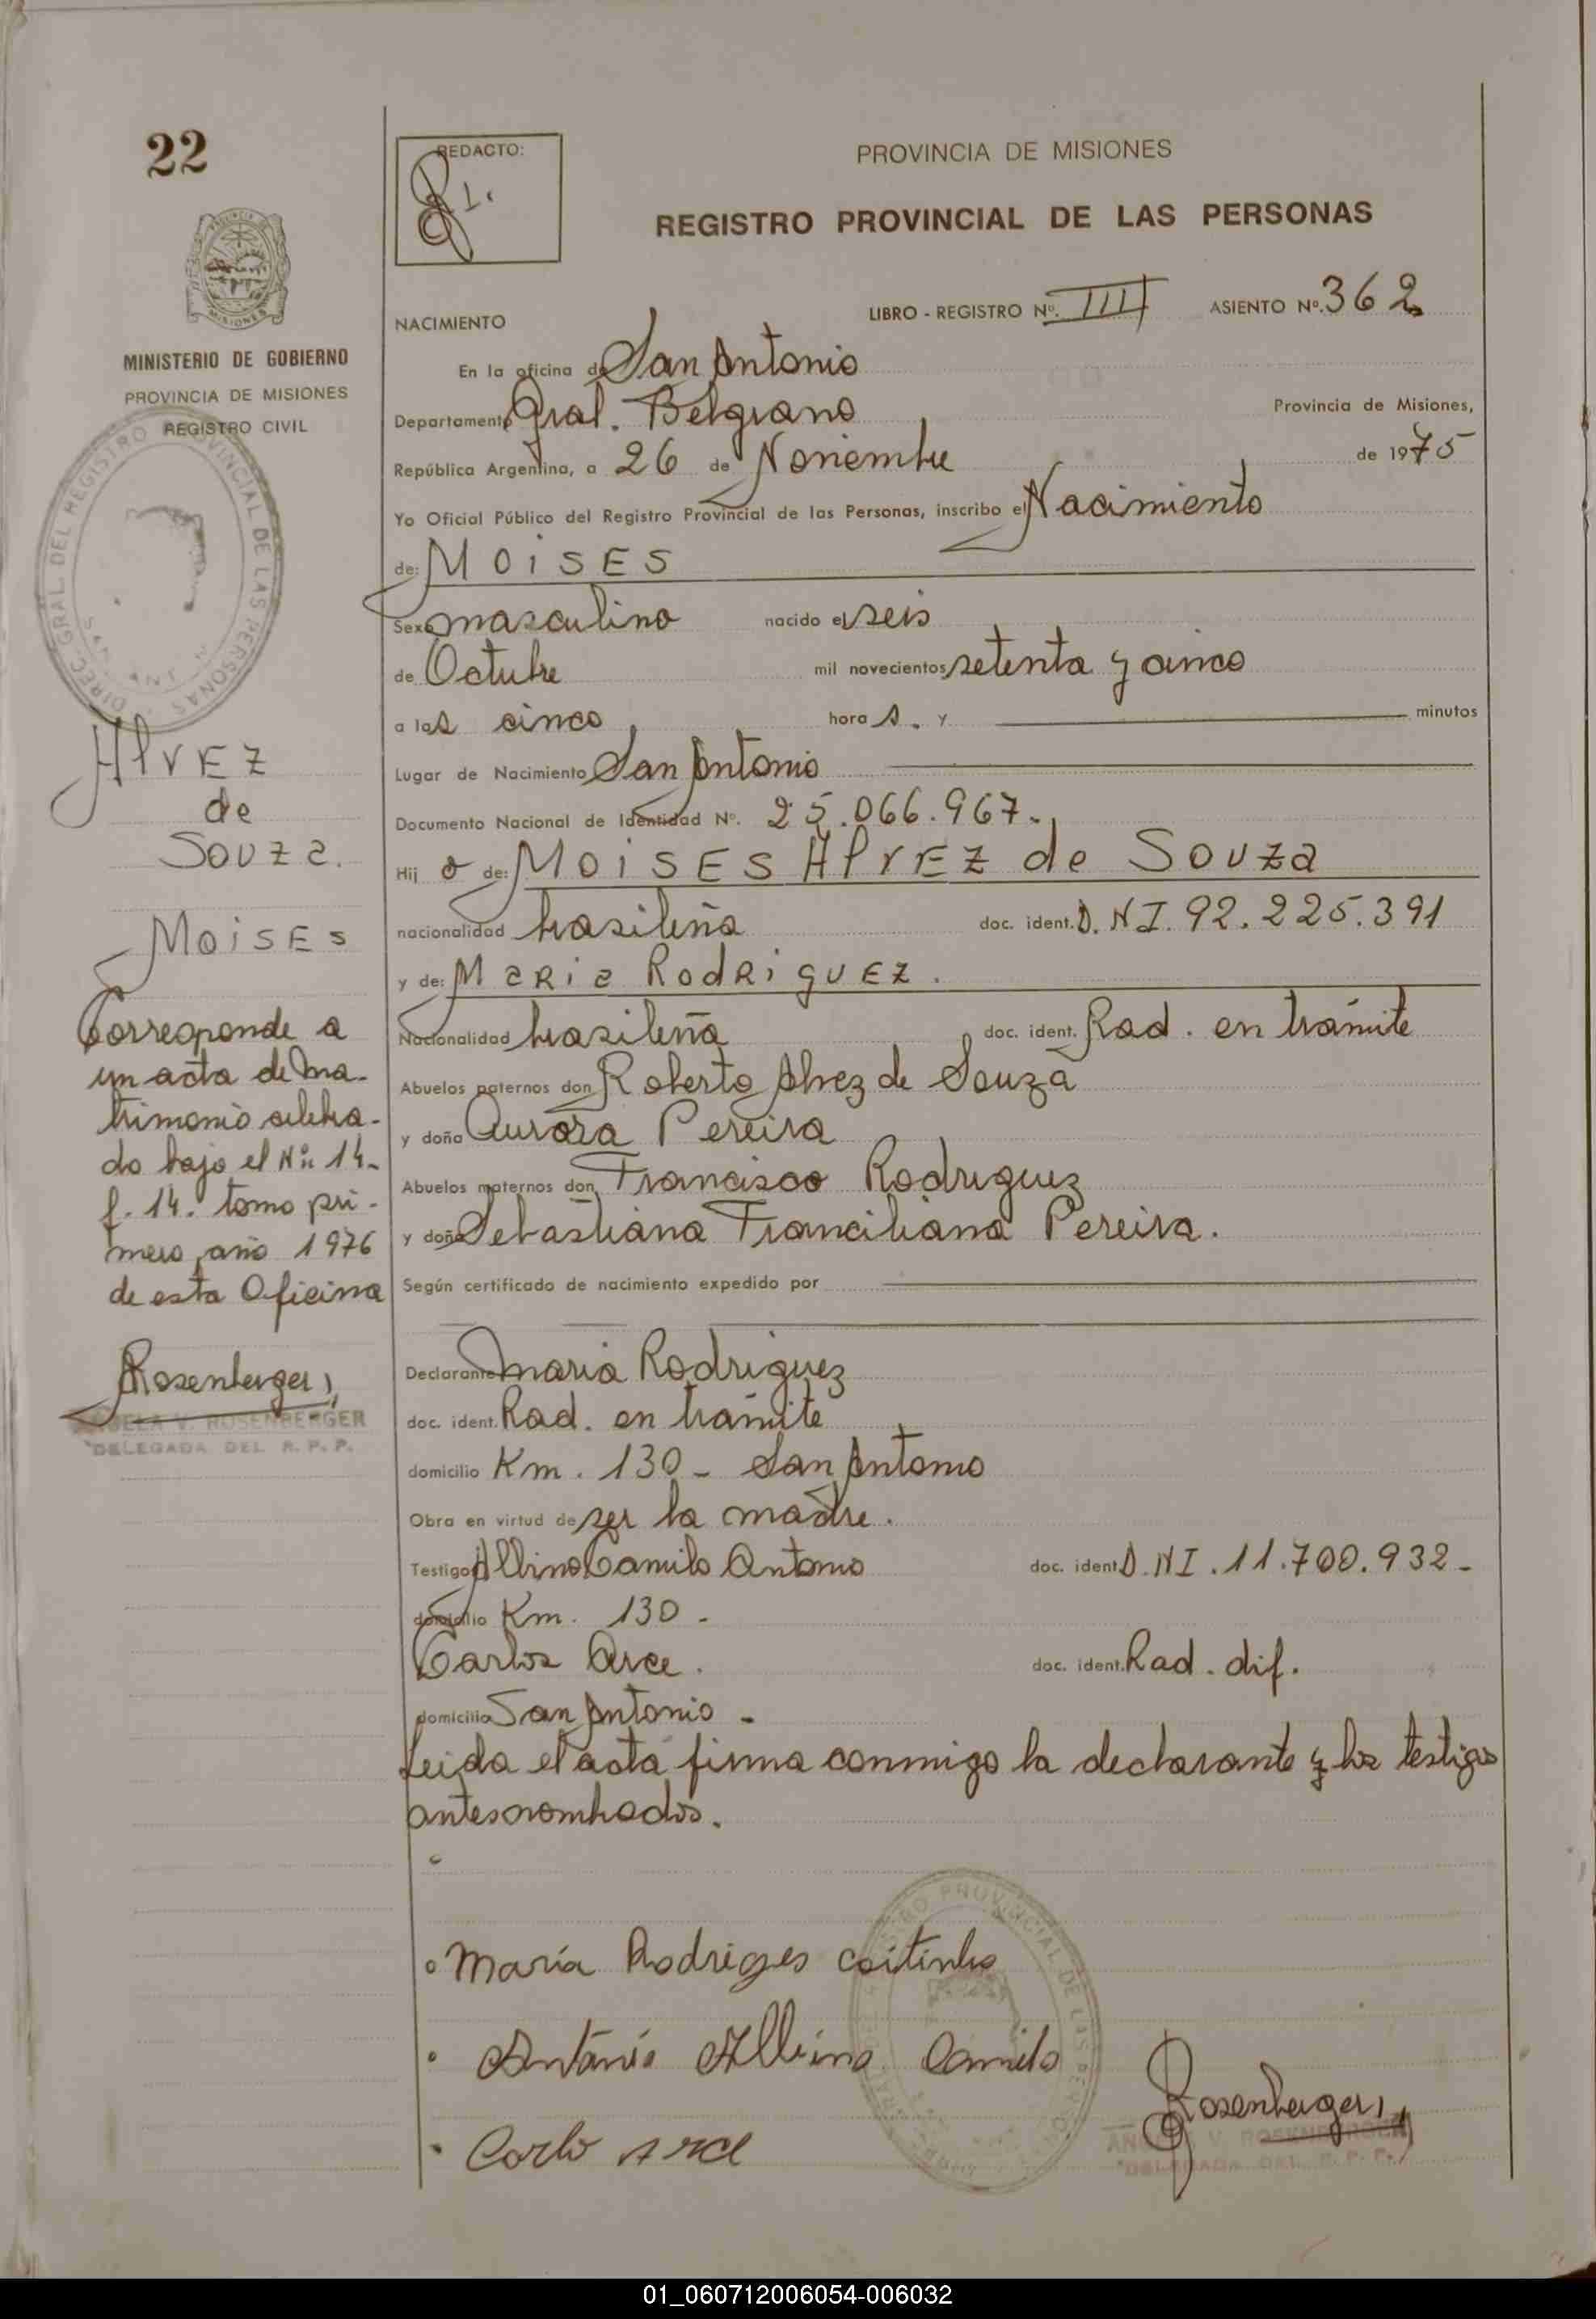 22
REDACTO:
PROVINCIA DE MISIONES
REGISTRO PROVINCIAL DE LAS PERSONAS
MINISTERIO DE GOBIERNO
PROVINCIA DE MISIONES
REGISTRO CIVIL
DIREC. GRAL. DEL REGISTRO PROVINCIAL DE LAS PERSONAS
Alvez
de
Souza.
Moises
Corresponde a
un acta de ma-
trimonio celebra-
do bajo el Nº 14-
f. 14. tomo pri-
mero, año 1976
de esta Oficina
Rosenberger
ANGELA V. ROSENBERGER
DELEGADA DEL R. P. P.
LIBRO - REGISTRO Nº. III ASIENTO Nº. 362
NACIMIENTO
En la oficina de San Antonio
Departamento Gral. Belgrano Provincia de Misiones,
República Argentina, a 26 de Noviembre de 1975
Yo Oficial Público del Registro Provincial de las Personas, inscribo el Nacimiento
de: MOiSES
Sexo masculino nacido el seis
de Octubre mil novecientos setenta y cinco
a las cinco hora s. y minutos
Lugar de Nacimiento San Antonio
Documento Nacional de Identidad Nº. 25.066.967.-
Hij o de: MOiSES AlvEZ de Souza
nacionalidad brasileña doc. ident. D.NI. 92.225.391
y de: Maria Rodriguez.
Nacionalidad brasileña doc. ident. Rad. en trámite
Abuelos paternos don Roberto Alvez de Souza
y doña Aurora Pereira
Abuelos maternos don Francisco Rodriguez
y doña Sebastiana Franciliana Pereira.
Según certificado de nacimiento expedido por
Declarante Maria Rodriguez
doc. ident. Rad. en trámite
domicilio Km. 130 - San Antonio
Obra en virtud de ser la madre.
Testigo Albino Camilo Antonio doc. ident. D.NI. 11.700.932-
domicilio Km. 130 -
Carlos Arce. doc. ident. Rad. dif.
domicilio San Antonio -
Leida el acta firma conmigo la declarante y los testigos
antes nombrados.
María Rodriges coitinho
Antônio Albino Camilo
Carlo Arce
Rosenberger
ANGELA V. ROSENBERGER
DELEGADA DEL R. P. P.
01_060712006054-006032